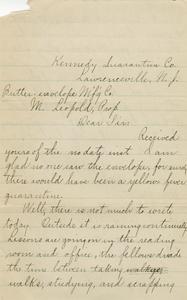 Kennedy Quarantine Co.
Lawrenceville, N.J.
Butter-envelope M'f'g Co.
M. Leopold, Prop.
Dear Sirs:
Received
yours of the no date inst. I am
glad no one saw the envelope, for surely
there would have been a yellow fever
quarantine.
Well, there is not much to write
today. Outside it is raining continuously,
Lessons are going on in the reading
room and office, the fellows divide
the time between taking
walks, studying, and scrapping